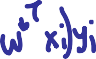 w^{tT} x_i) y_i